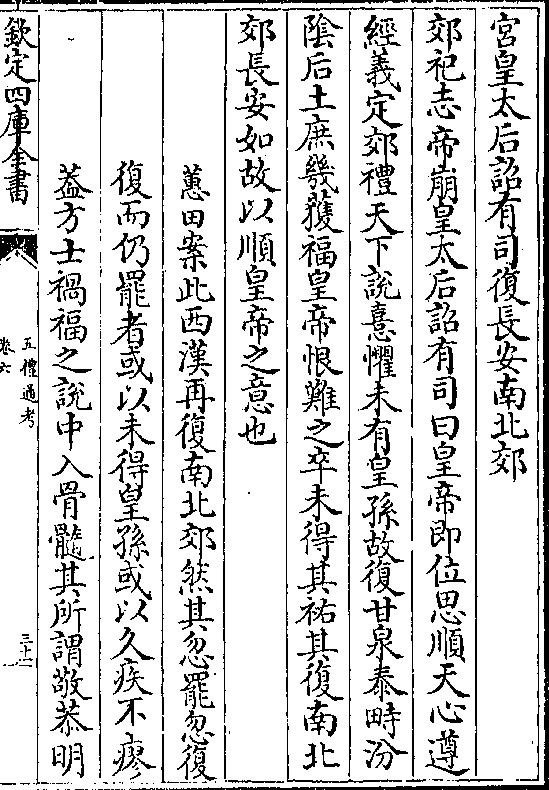 宮皇太后詔有司復長安南北郊
郊祀志帝崩皇太后詔有司曰皇帝即位思順天心遵
經義定郊禮天下說憙懼未有皇孫故復甘泉泰畤汾
陰后土庶幾獲福皇帝恨難之卒未得其祐其復南北
郊長安如故以順皇帝之意也
蕙田案此西漢再復南北郊然其忽罷忽復
復而仍罷者或以未得皇孫或以久疾不瘳
葢方士禍福之說中入骨髓其所謂敬恭明
欽定四庫全書
五禮通考
卷六
三十一